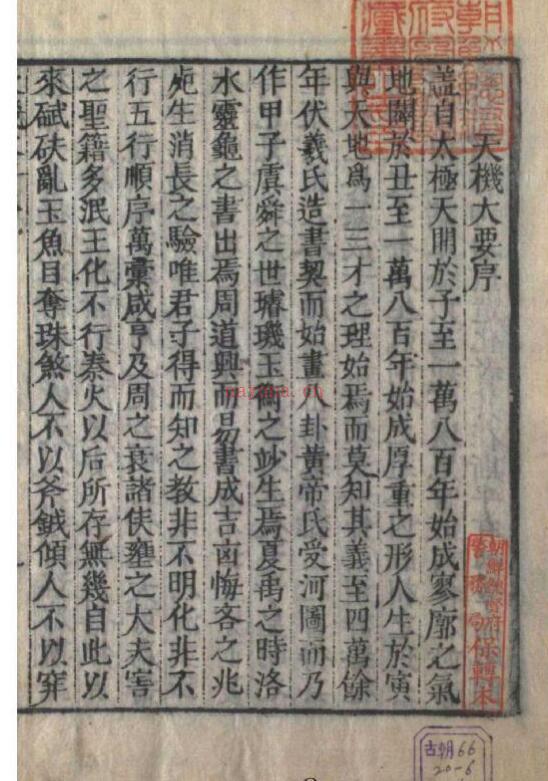 天機大要序
蓋自太極天開於子至一萬八百年始成寥廓之氣
地闢於丑至一萬八百年始成厚重之形人生於寅
與天地爲一三才之理始焉而莫知其義至四萬餘
年伏羲氏造書契而始畫八卦黃帝氏受河圖而乃
作甲子虞舜之世璿璣玉衡之妙生焉夏禹之時洛
水靈龜之書出焉周道興而易書成吉凶悔吝之兆
死生消長之驗唯君子得而知之教非不明化非不
行五行順序萬彙咸亨及周之衰諸侯壅之大夫害
之聖籍多泯王化不行秦火以后所存無幾自此以
來碔砆亂玉魚目奪珠煞人不以斧鉞傾人不以穽
朝鮮總督府
保轉本
古朝66
20-6